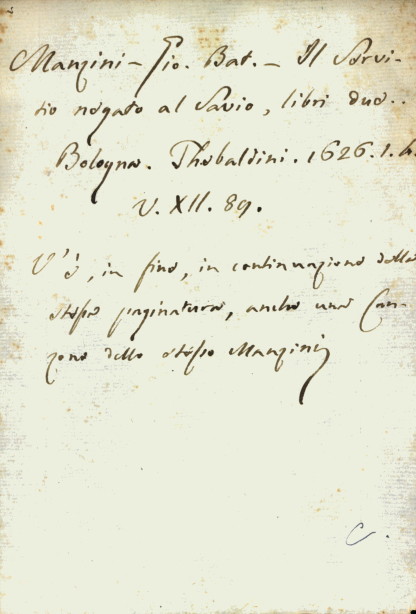 Manzini - Gio. Bat. - Il Servi-
tio negato al Savio, libri due..
Bologna. Thebaldini. 1626. 1. 4.
V. XII. 89.
V'è, in fine, in continuazione della
stessa paginatura, anche una Can-
zone dello stesso Manzini
C.